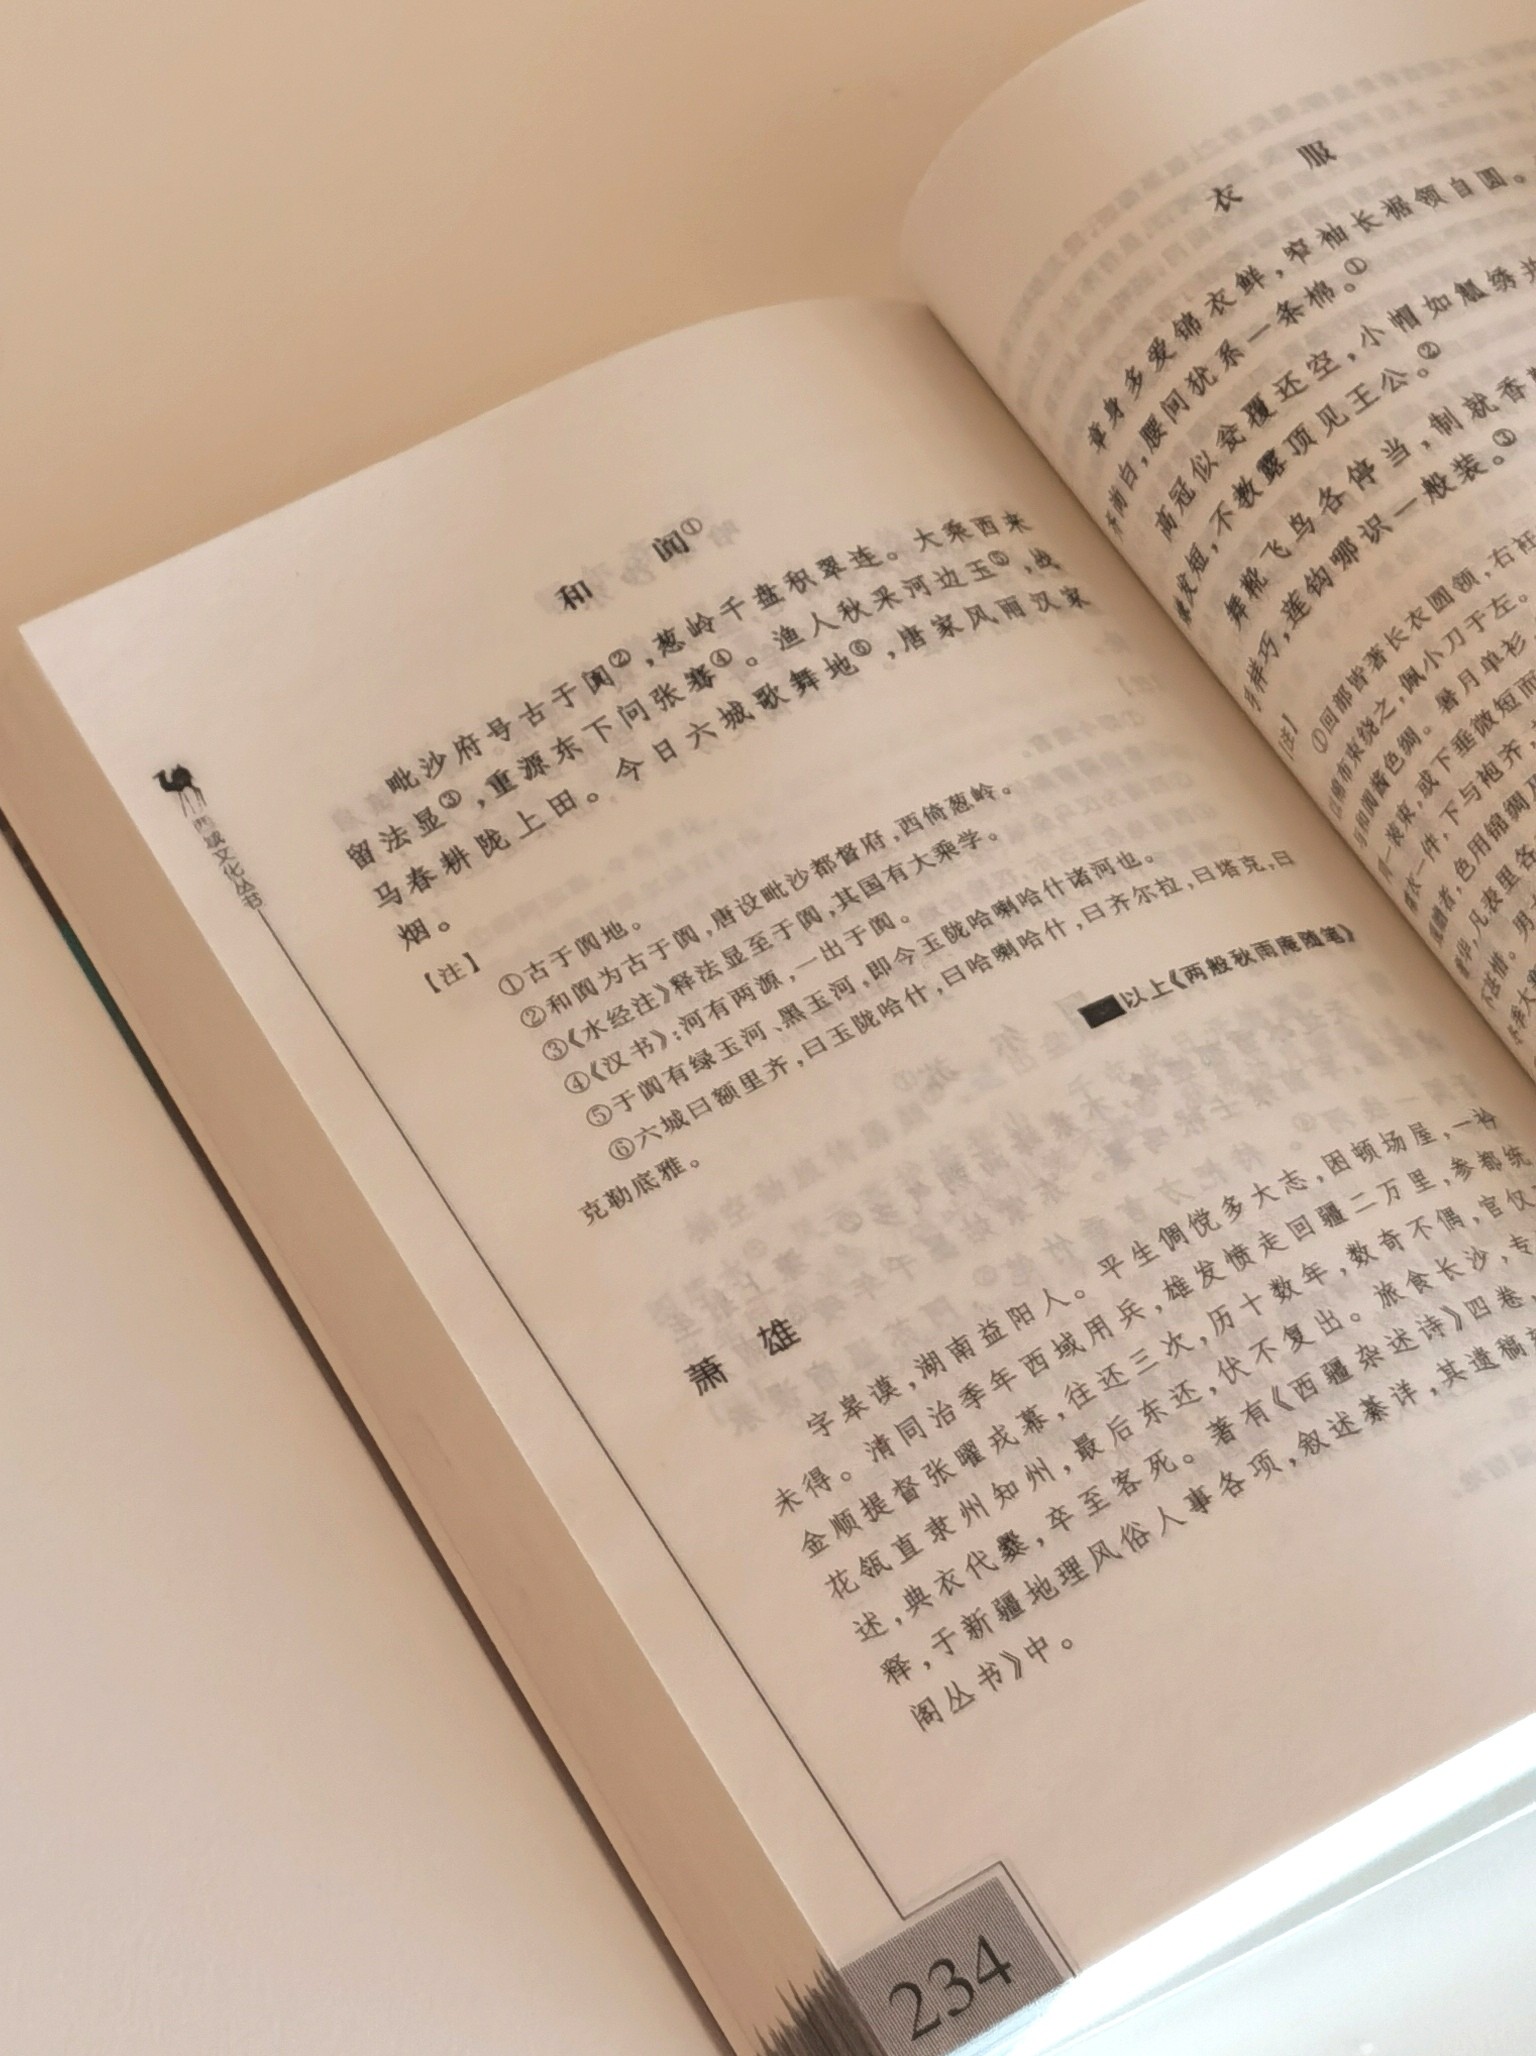 西域文化丛书
和 阗①
毗沙府号古于阗②,葱岭千盘积翠连。大乘西来
留法显③,重源东下问张骞④。渔人秋采河边玉⑤,战
马春耕陇上田。今日六城歌舞地⑥,唐家风雨汉家
烟。
【注】
①古于阗地。
②和阗为古于阗,唐设毗沙都督府,西倚葱岭。
③《水经注》释法显至于阗,其国有大乘学。
④《汉书》:河有两源,一出于阗。
⑤于阗有绿玉河、黑玉河,即今玉陇哈喇哈什诸河也。
⑥六城曰额里齐,曰玉陇哈什,曰哈喇哈什,曰齐尔拉,曰塔克,曰
克勒底雅。
以上《两般秋雨庵随笔》
萧 雄
字皋谟,湖南益阳人。平生倜傥多大志,困顿场屋,一衿
未得。清同治季年西域用兵,雄发愤走回疆二万里,参都统
金顺提督张曜戎幕,往还三次,历十数年,数奇不偶,官仅
花瓴直隶州知州,最后东还,伏不复出。旅食长沙,专
述,典衣代爨,卒至客死。著有《西疆杂述诗》四卷,
释,于新疆地理风俗人事各项,叙述綦详,其遗稿
阁丛书》中。
234
衣 服
章身多爱锦衣鲜,窄袖长裾领自圆。
白,腰间犹系一条棉。①
高冠似瓮覆还空,小帽如瓢绣
发短,不教露顶见王公。②
舞靴飞鸟各停当,制就香
样巧,莲钩哪识一般装。③
[注]
①回部皆著长衣圆领,右衽
以绸布束绕之,佩小刀于左。
和阗酱色绸。暑月单衫
装束,或下垂微短而
衣一件,下与袍齐,
者,色用锦绸
,凡表里各